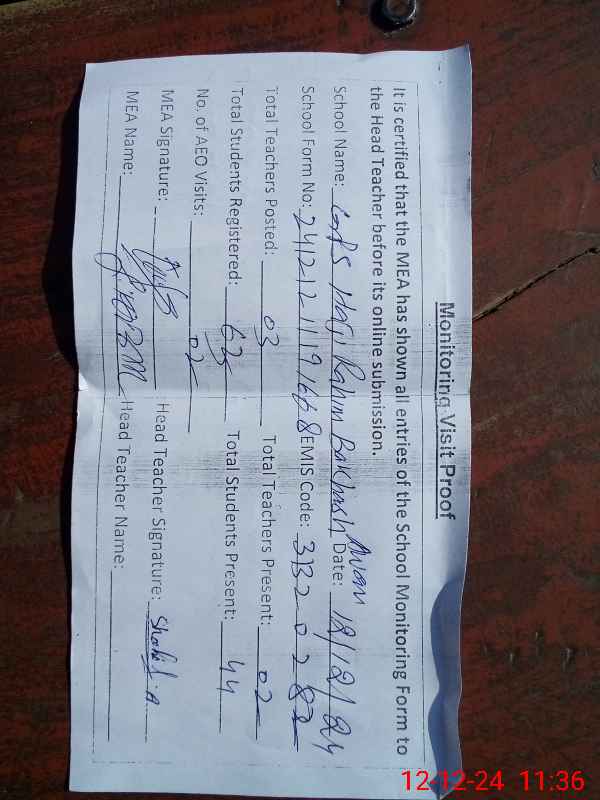 Monitoring Visit Proof
It is certified that the MEA has shown all entries of the School Monitoring Form to
the Head Teacher before its online submission.
School Name: GBPS Haji Rahim Bakhsh Awan Date: 12/12/24
School Form No: EMIS Code:
Total Teachers Posted: 03 Total Teachers Present: 02
Total Students Registered: 63 Total Students Present: 44
No. of AEO Visits: 02
MEA Signature: Head Teacher Signature:
MEA Name: Head Teacher Name:
12-12-24 11:36